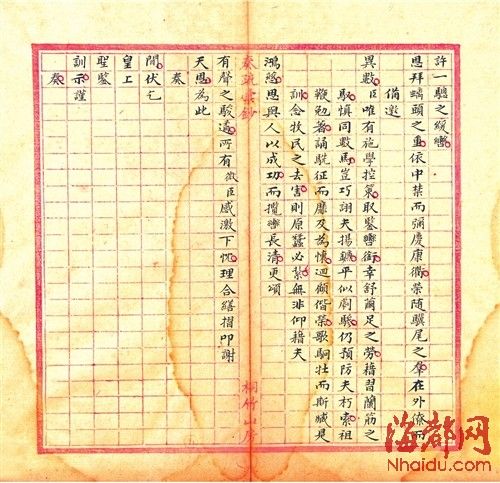 許一驄之緩轡
恩拜螭頭之重依中禁而彌慶康衢榮隨驥尾之羣在外僚而
備邀
異數臣唯有施學控策取鑒轡銜幸舒繭足之勞藉習蘭筋之
馭慎同數馬豈巧詡夫揚鑣平似劇驂仍預防夫朽索祖
鞭勉著誦駪征而靡及為懷迴傾偕榮歌駉牡而斯臧是
訓念扶民之去害則原蠶必縶無非仰藉夫
鴻慈恩與人以成功而攬轡長清更頌
奏疏彙鈔
桐竹山房
有聲之駿遹所有微臣感激下忱理合繕摺叩謝
天恩為此
奏
聞伏乞
皇上
聖鑒
訓示謹
奏
海都网
Nhaidu.com